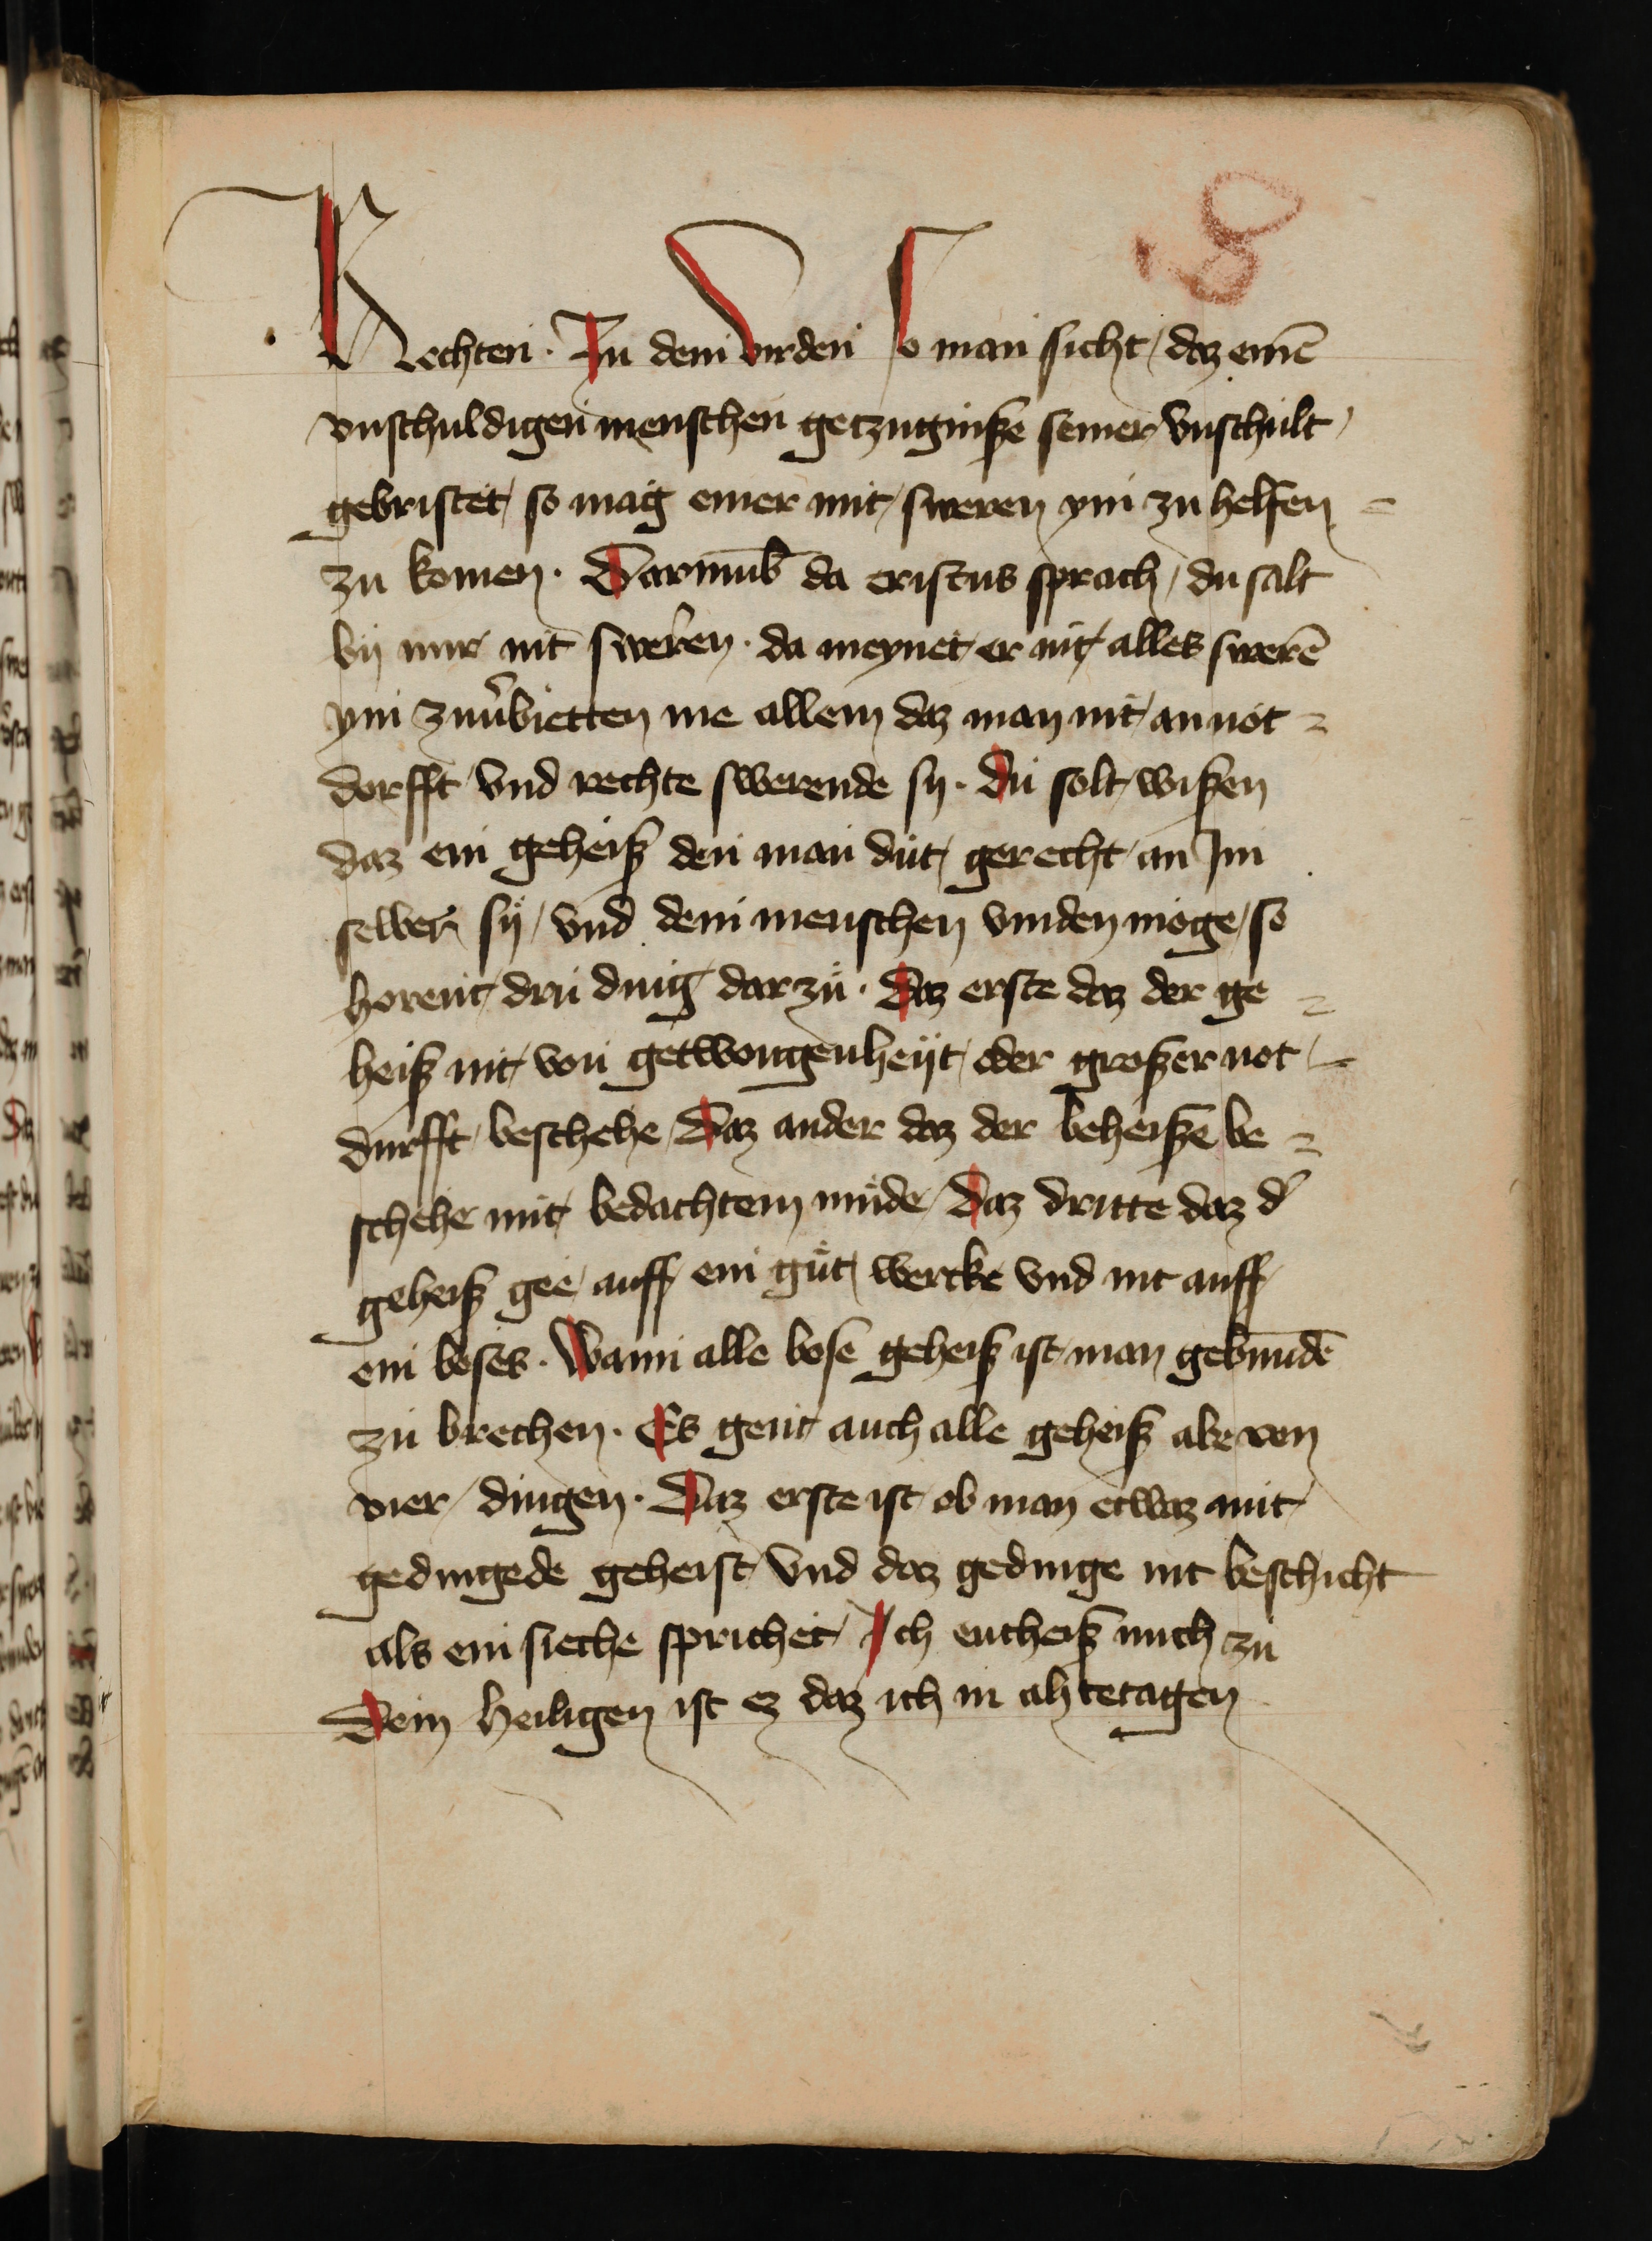 8
Rechten. In dem virden so man sicht, daz einē
vnschuldigen menschen getzugniße seiner vnschult,
gebristet, so mag einer mit, sweren ym zu helfen =
zu komen. Darumb da cristus sprach, du salt
by mir nit sweren. da meynet, er nit, alles swerē
ym zuu̕bietten me allein daz man nit, an not =
dorfft vnd rechte swerende sy. Du solt, wißen
daz ein geheiß den man dut, gerecht, an Im
selber sy, vnd dem menschen vinden möge, so
horent, dru ding dar zu. Daz erste daz der ge =
heiß nit, von getwongenheyt, oder großer not =
durfft beschehe, Daz ander daz der beheiße be =
schehe mit, bedachtem mude, Daz dritte daz d̕
geheiß gee, auff ein gut, wercke vnd nit auff
ein boses. Wann alle bose geheiß ist, man gebundē
zu brechen. Es gent, auch alle geheiß abe von
vier, dingen. Daz erste ist, ob man etwaz mit
gedingede geheist, vnd daz gedinge nit beschicht
als ein sieche sprichet, Ich entheiß mich zu
Dem heiligen ist ez daz ich in ahtetagen